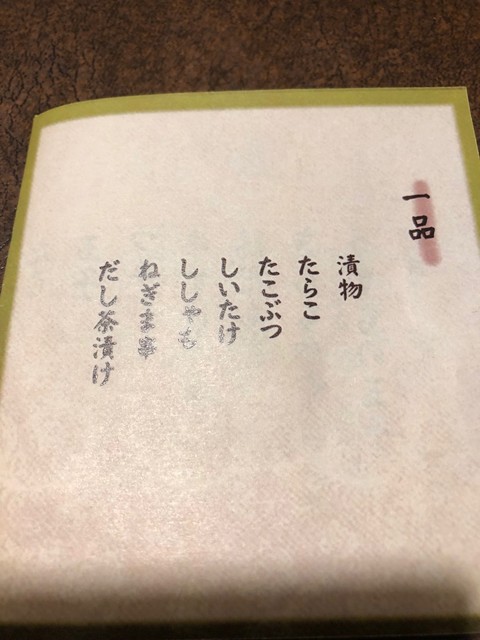 一品
漬物
たらこ
たこぶつ
しいたけ
ししゃも
ねぎま串
だし茶漬け